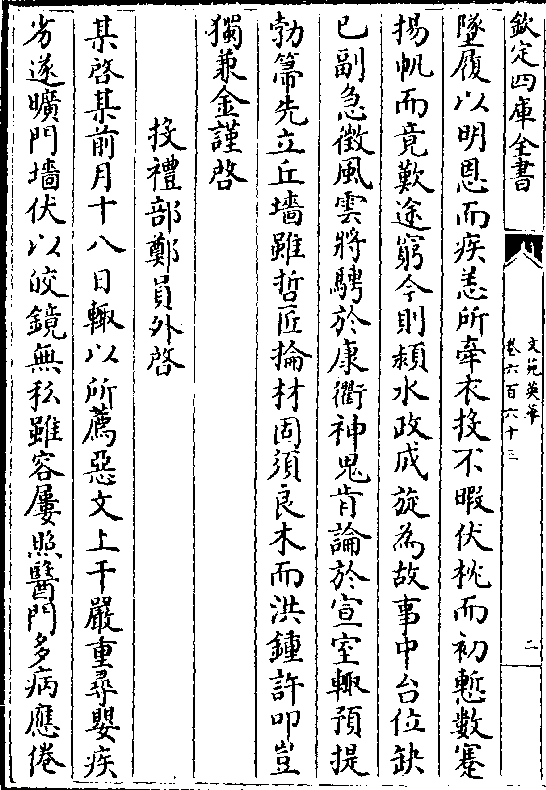 欽定四庫全書
文苑英華
卷六百六十三
二
墜履以明恩而疾恙所牽衣投不暇伏枕而初慙數蹇
揚帆而竟歎途窮今則潁水政成旋為故事中台位缺
已副急徴風雲將騁於康衢神鬼肯論於宣室輙預提
勃箒先立丘墻雖哲匠掄材固須良木而洪鍾許叩豈
獨兼金謹啓
投禮部鄭員外啓
某啓某前月十八日輙以所薦惡文上干嚴重尋嬰疾
务遂曠門墻伏以皎鏡無私雖容屢照醫門多病應倦